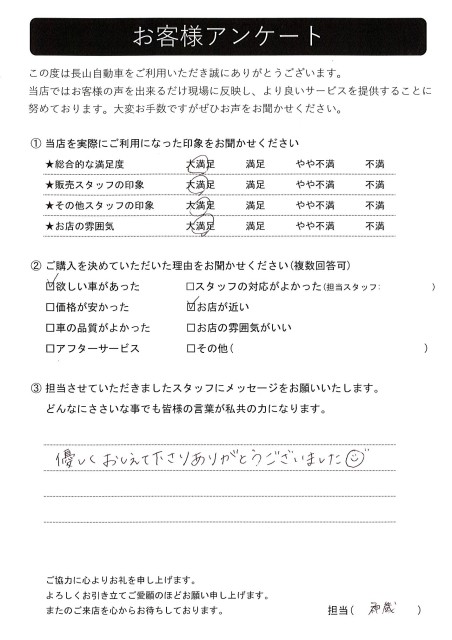 お客様アンケート
この度は長山自動車をご利用いただき誠にありがとうございます。
当店ではお客様の声を出来るだけ現場に反映し、より良いサービスを提供することに
努めております。大変お手数ですがぜひお声をお聞かせください。
① 当店を実際にご利用になった印象をお聞かせください
★総合的な満足度 大満足 満足 やや不満 不満
★販売スタッフの印象 大満足 満足 やや不満 不満
★その他スタッフの印象 大満足 満足 やや不満 不満
★お店の雰囲気 大満足 満足 やや不満 不満
② ご購入を決めていただいた理由をお聞かせください(複数回答可)
☑欲しい車があった □スタッフの対応がよかった(担当スタッフ: )
□価格が安かった ☑お店が近い
□車の品質がよかった □お店の雰囲気がいい
□アフターサービス □その他( )
③ 担当させていただきましたスタッフにメッセージをお願いいたします。
どんなにささいな事でも皆様の言葉が私共の力になります。
優しくおしえて下さりありがとうございました☺
ご協力に心よりお礼を申し上げます。
よろしくお引き立てご愛顧のほどお願い申し上げます。
またのご来店を心からお待ちしております。
担当( )